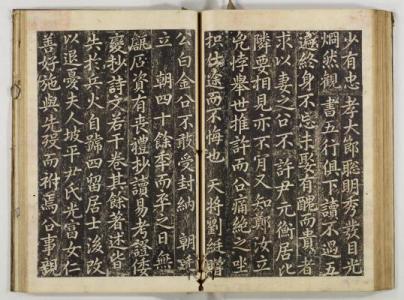 少有忠孝大郎聰明秀發目光
烱然觀書五行俱下讀不過五
遍終身不忘未娶有醜而貴者
求以妻之公不許尹元衡居比
隣要相見亦不肯又知鄭汝立
兇悖舉世推許而公痛絶之坐
枳仕途而不悔也 天將劉綎贈
公白金公不敢受封納 朝廷
立 朝四十餘季而卒之日無
甔石資有喪禮抄讀易考證倭
憂抄詩文若干卷其餘著述皆
失於兵火自號四留居士後改
以退憂夫人坡平尹氏光富女仁
善好施與先歿而祔焉公事親